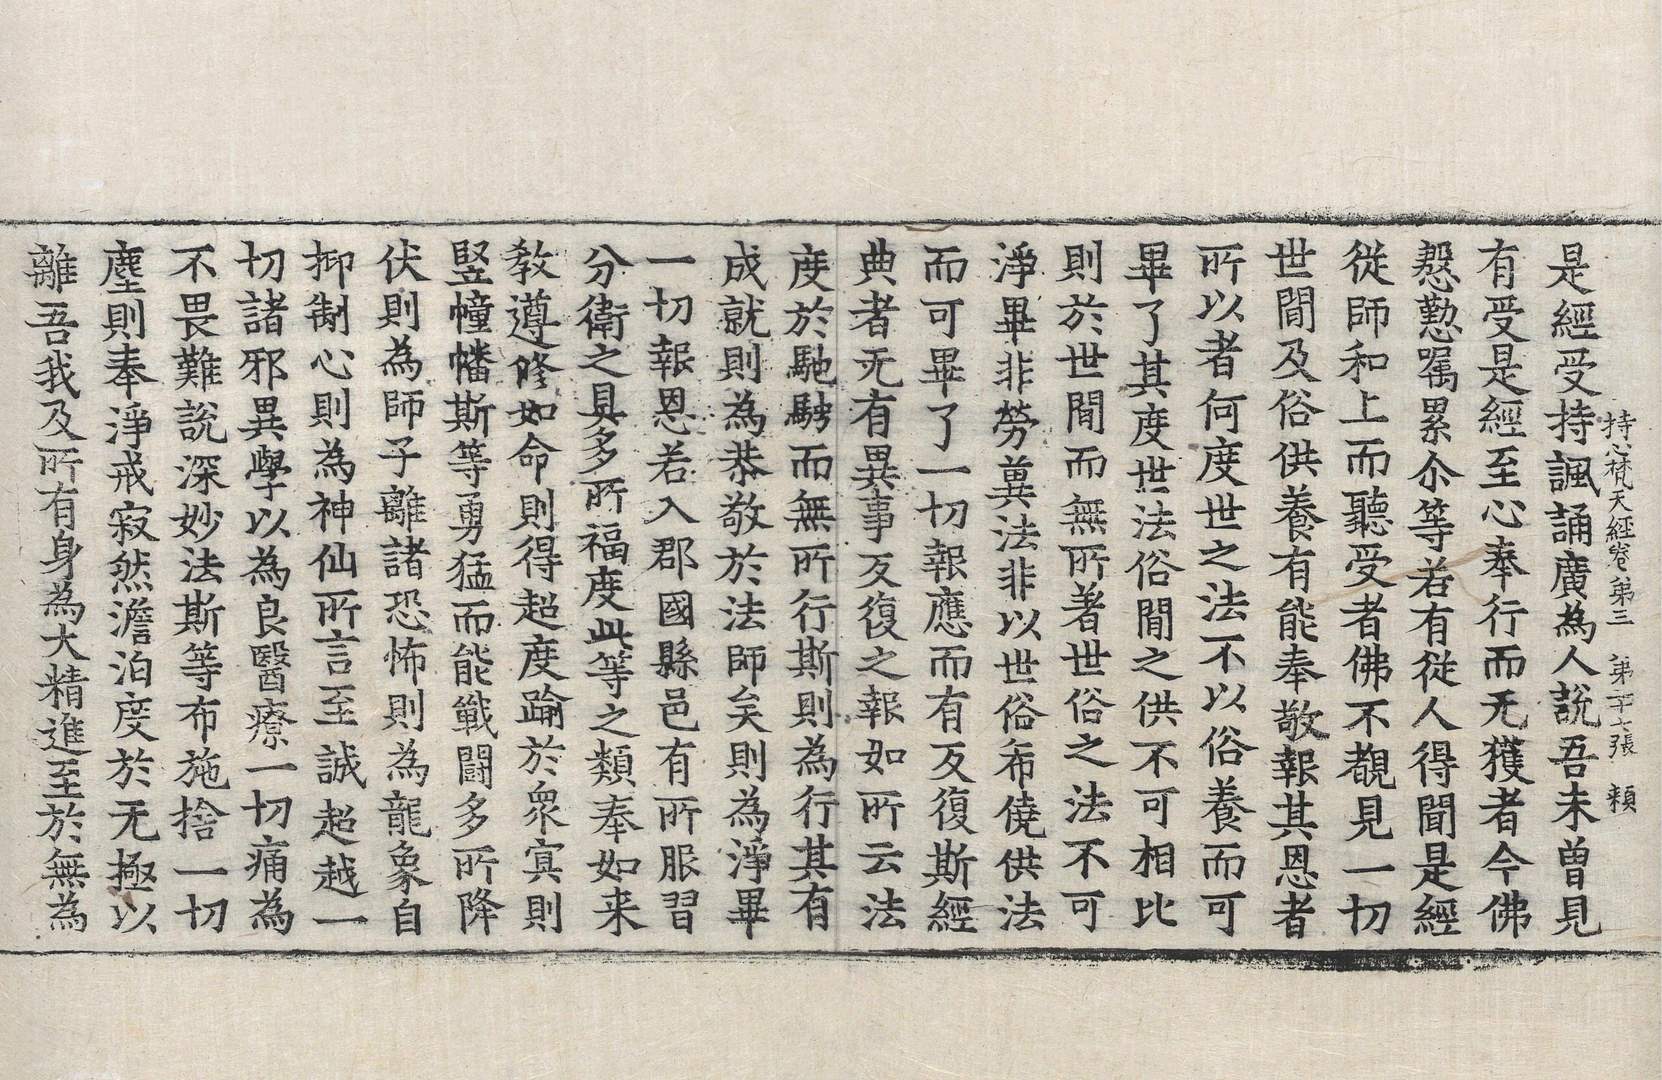 持心梵天經卷第三　第二十七張　頼
是經受持諷誦廣為人說吾未曽見
有受是經至心奉行而无獲者今佛
慇懃囑累尒等若有從人得聞是經
從師和上而聽受者佛不覩見一切
世間及俗供養有能奉敬報其恩者
所以者何度世之法不以俗養而可
畢了其度世法俗閒之供不可相比
則於世間而無所著世俗之法不可
淨畢非勞兾法非以世俗希僥供法
而可畢了一切報應而有反復斯經
典者无有異事反復之報如所云法
度於馳騁而無所行斯則為行其有
成就則為恭敬於法師矣則為淨畢
一切報恩若入郡國縣邑有所服習
分衛之具多所福度此等之類奉如来
教遵修如命則得超度踰於衆㝠則
竪幢幡斯等勇猛而能戰鬪多所降
伏則為師子離諸恐怖則為龍象自
抑制心則為神仙所言至誠超越一
切諸邪異學以為良醫療一切痛為
不畏難說深妙法斯等布施捨一切
塵則奉淨戒寂然澹泊度於无極以
離吾我及所有身為大精進至於無為